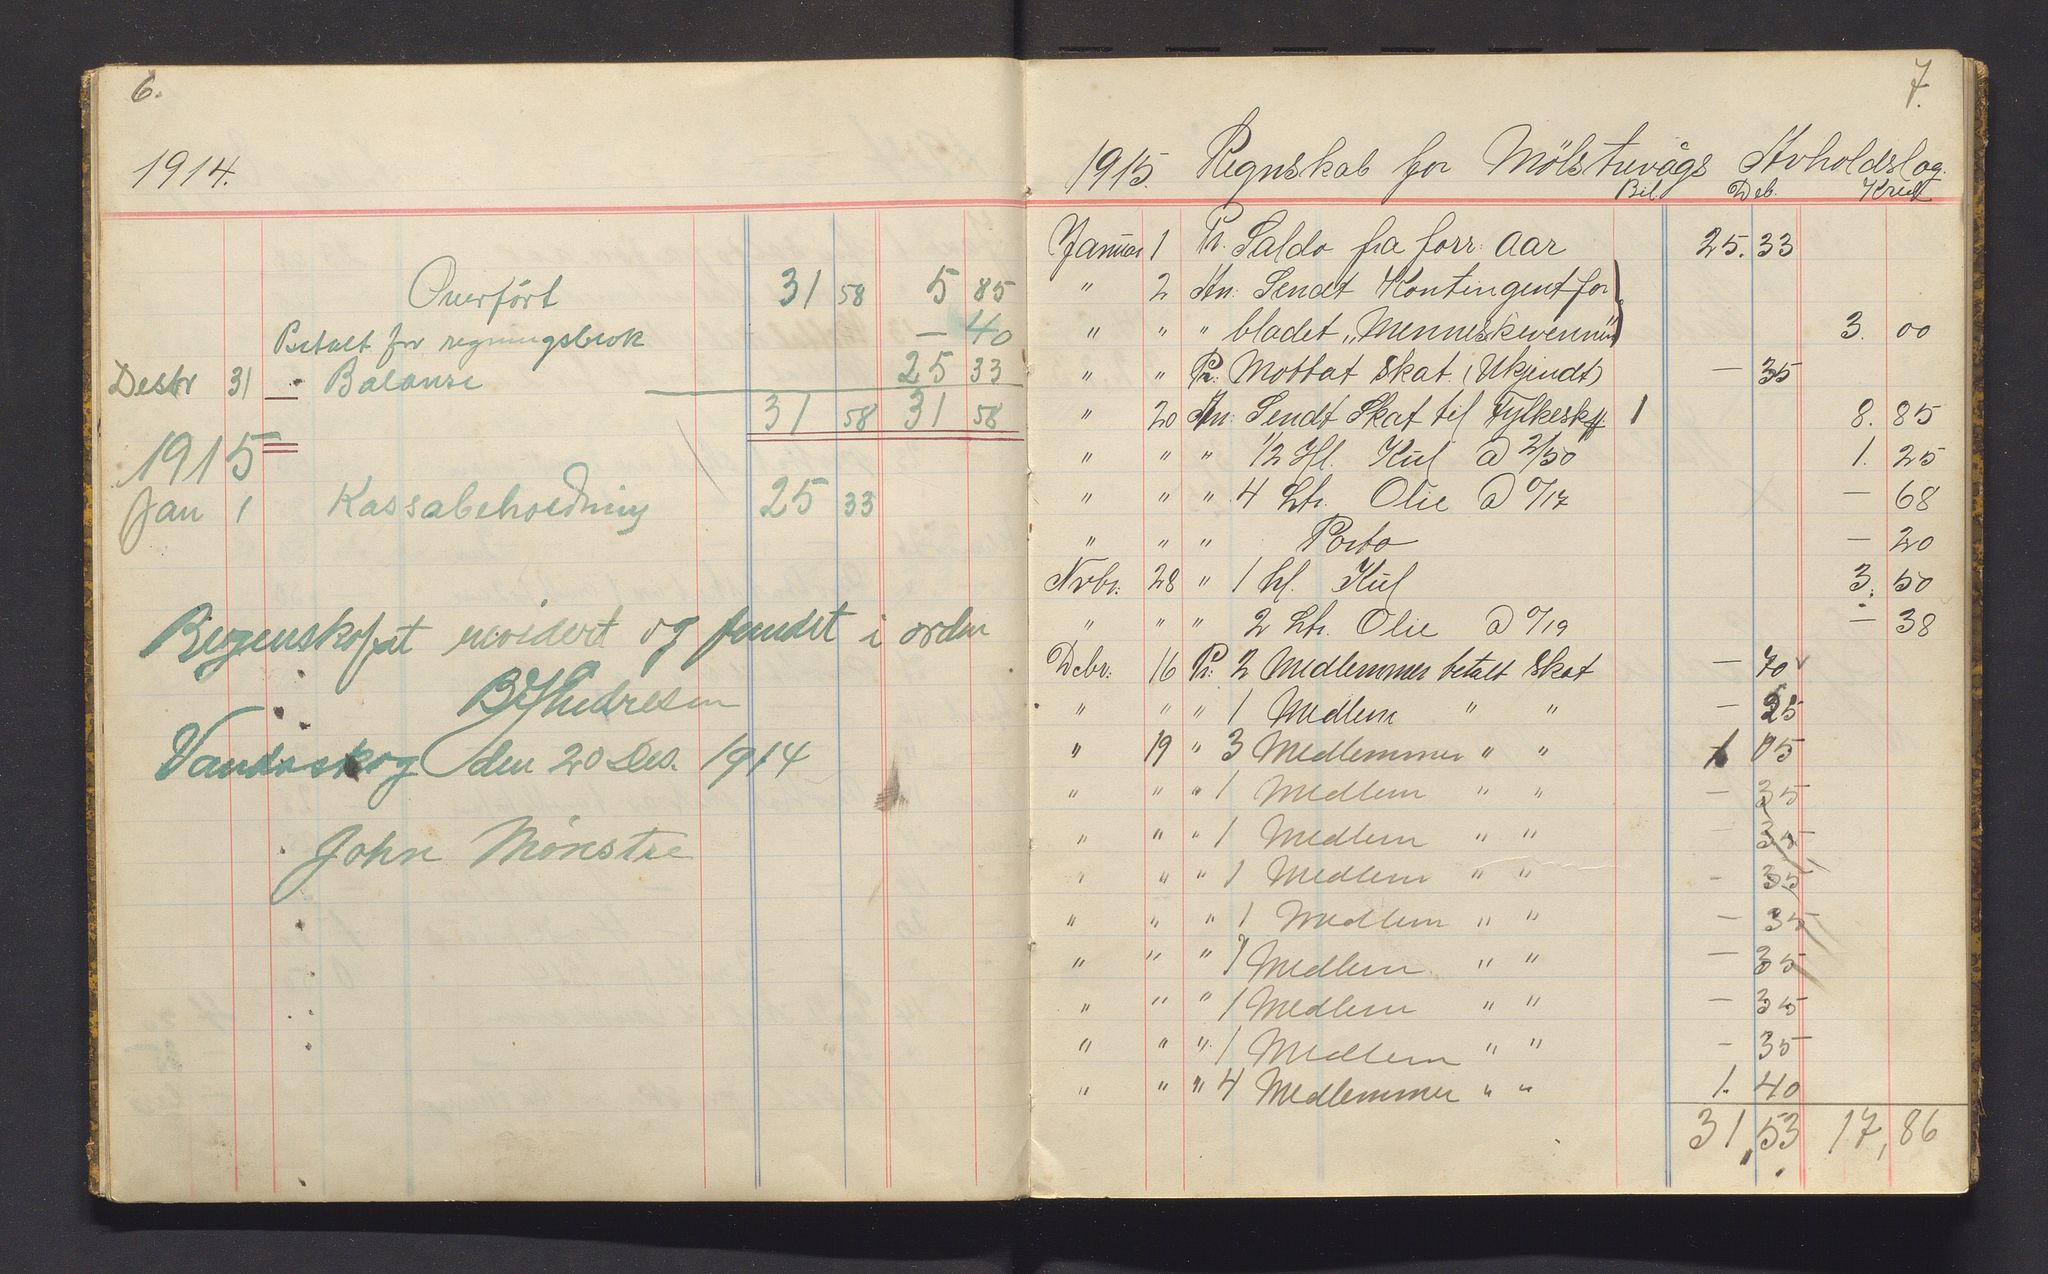 6.
1914.
Overført 31 58 5 85
Betalt for regningsbok — 40
Desbr 31 - Balanse 25 33
31 58 31 58
1915
Jan 1 Kassabeholdning 25 33
revidert og fundet i orden
den 20 Des. 1914
John Mønstre
7.
1915. Regnskab for Mölstrevågs Avholdslag.
Bil. Deb. Kredt
Januar 1 Pr. Saldo fra forr. Aar 25. 33
" 2 An: Sendt Kontingent for
" " " bladet „Menneskevennen" 3. 00
" " Pr: Mottat Skat (Ukjendt) — 35
" 20 An: Sendt Skat til Fylkesk. 1 8. 85
" " " 1/2 Hl. Kul a 2/50 1. 25
" " " 4 Ltr. Olie a 0/17 — 68
" " " Porto — 20
Nvbr: 28 " 1 hl. Kul 3. 50
" " " 2 Ltr. Olie a 0/19 — 38
Dcbr: 16 Pr: 2 Medlemmer betalt Skat — 70
" " " 1 Medlem " " — 25
" 19 " 3 Medlemmer " " 1 05
" " " 1 Medlem " " — 35
" " " 1 Medlem " " — 35
" " " 1 Medlem " " — 35
" " " 1 Medlem " " — 35
" " " 1 Medlem " " — 35
" " " 1 Medlem " " — 35
" " " 1 Medlem " " — 35
" " " 4 Medlemmer " " 1. 40
31,53 17,86